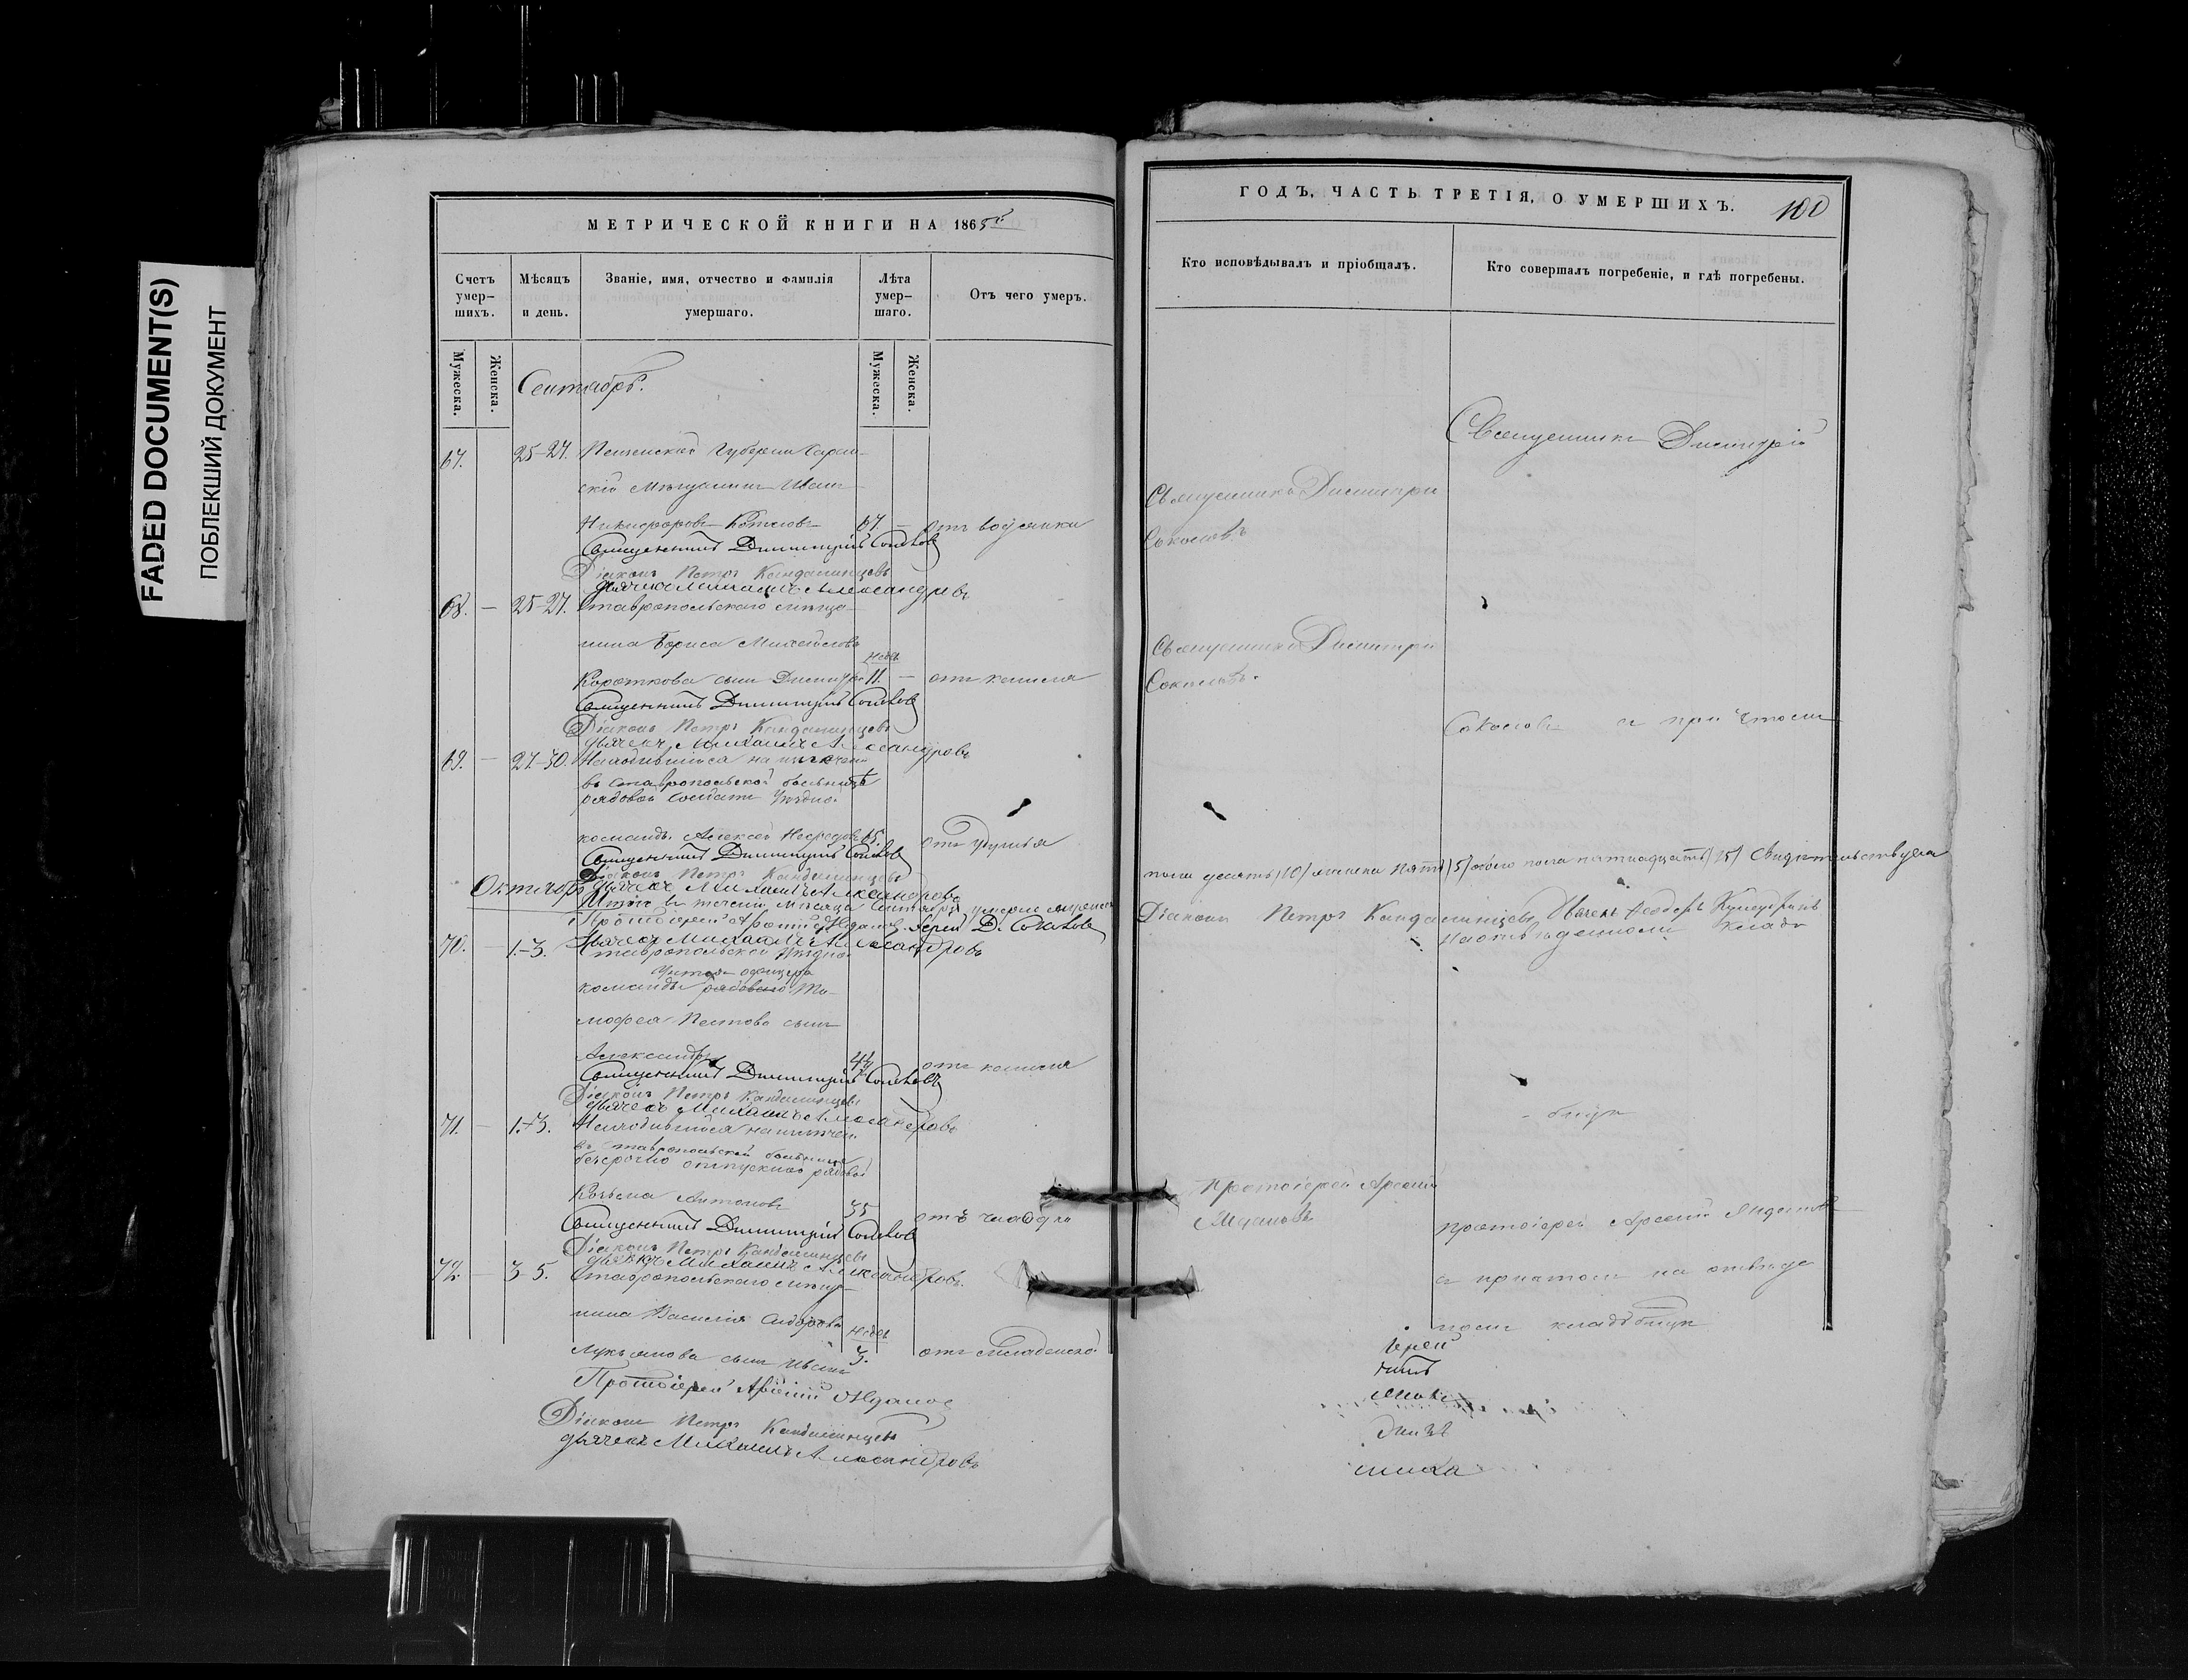 FADED DOCUMENT(S)
ПОБЛЕКШИЙ ДОКУМЕНТ
МЕТРИЧЕСКОЙ КНИГИ НА 1865й
Счетъ умер-
шихъ.
Мѣсяцъ
и день.
Званіе, имя, отчество и фамилія
умершаго.
Лѣта
умер-
шаго.
Отъ чего умеръ.
Мужеска.
Женска.
Мужеска.
Женска.
Сентябрь.
67. 25-27. Пензенской Губерніи Саран-
скій Мѣщанинъ Иванъ
Никифоровъ 67. — отъ водянки
Священникъ Димитрій Соколовъ
Діаконъ Петръ Кандалинцевъ
Дьячекъ Михаилъ Александровъ
68. — 25-27. Ставропольскаго мѣща-
нина Бориса Михайлова
недѣль
Короткова сынъ Димитрій 11. — отъ кашля
Священникъ Димитрій Соколовъ
Діаконъ Петръ Кандалинцевъ
Дьячекъ Михаилъ Александровъ
69. — 27-30. Находившійся на излеченіи
въ Ставропольской больницѣ
рядовой солдатъ Уѣздно.
команды Алексѣй 65. отъ удушья
Священникъ Димитрій Соколовъ
Діаконъ Петръ Кандалинцевъ
Дьячекъ Михаилъ Александровъ
Октябрь
Итого въ теченіи мѣсяца Сентября умерло мужеска
Протоіерей Арсеній Ждановъ. Іерей Д. Соколовъ
Дьячекъ Михаилъ Александровъ
70. — 1-3. Ставропольской Уѣздно.
Унтеръ офицера
команды рядоваго Ти-
мофея Пестова сынъ
Александръ отъ кашля
Священникъ Димитрій Соколовъ
Діаконъ Петръ Кандалинцевъ
Дьячекъ Михаилъ Александровъ
71. — 1-3. Находившійся на излечен.
въ Ставропольской больницѣ
безсрочно отпускной рядовой
Козьма Антоновъ 35 отъ чахотки
Священникъ Димитрій Соколовъ
Діаконъ Петръ Кандалинцевъ
Дьячекъ Михаилъ Александровъ
72. — 3-5. Ставропольскаго мѣща-
нина Василія Сидорова
недѣль
Лукьянова сынъ Иванъ 3. отъ младенской
Протоіерей Арсеній Ждановъ
Діаконъ Петръ Кандалинцевъ
Дьячекъ Михаилъ Александровъ
ГОДЪ, ЧАСТЬ ТРЕТІЯ, О УМЕРШИХЪ.
100
Кто исповѣдывалъ и пріобщалъ.
Кто совершалъ погребеніе, и гдѣ погребены.
Священникъ Димитрій
Священникъ Димитрій
Соколовъ
Священникъ Димитрій
Соколовъ.
Соколовъ съ причтомъ
пола десять (10) женска пять (5) обоего пола пятнадцать (15) Свидѣтельствуемъ
Діаконъ Петръ Кандалинцевъ Дьячекъ Ѳеодоръ
на отведенномъ кладъ
- бищѣ
Протоіерей Арсеній
Ждановъ
Протоіерей Арсеній Ждановъ
съ причтомъ на отведен
номъ кладбищѣ
Іерей